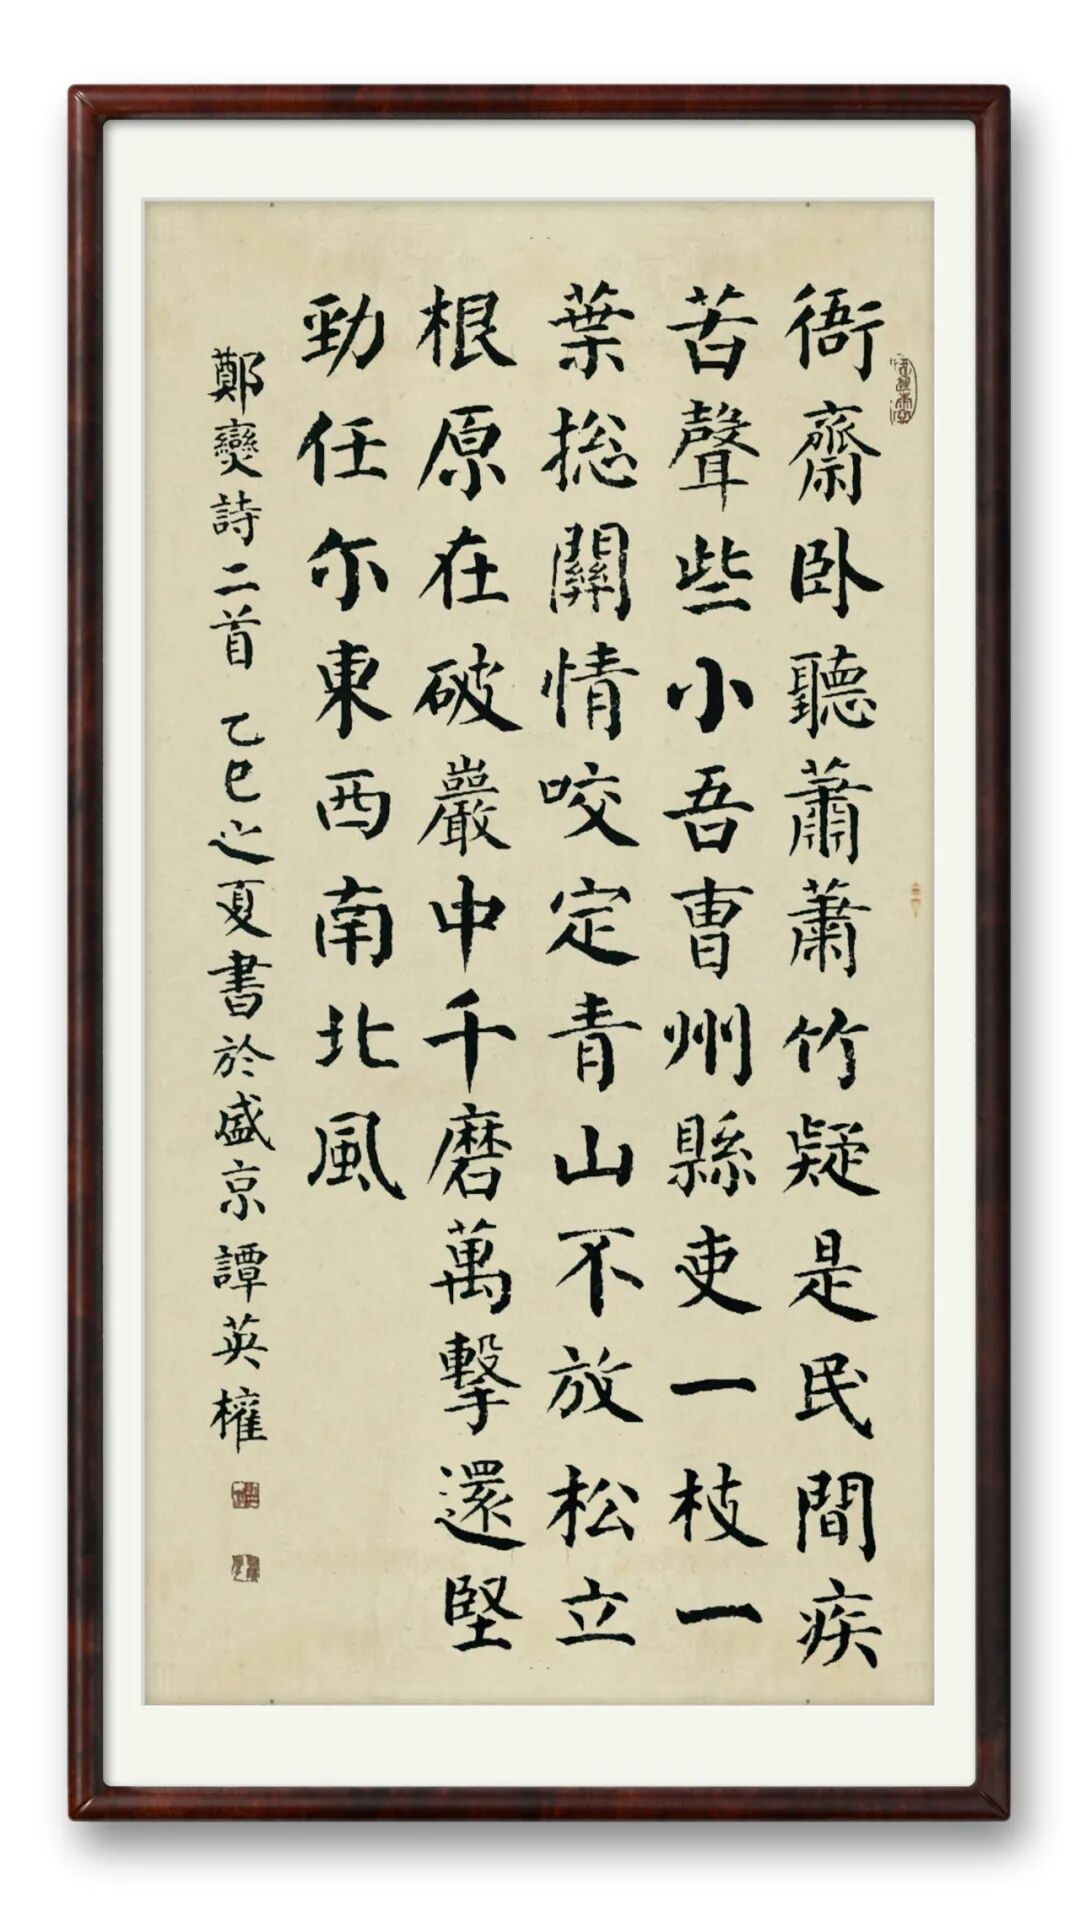 衙齋卧聽蕭蕭竹疑是民間疾
苦聲些小吾曹州縣吏一枝一
葉捴關情咬定青山不放松立
根原在破巖中千磨萬擊還堅
勁任尔東西南北風
鄭燮詩二首 乙巳之夏書於盛京譚英權